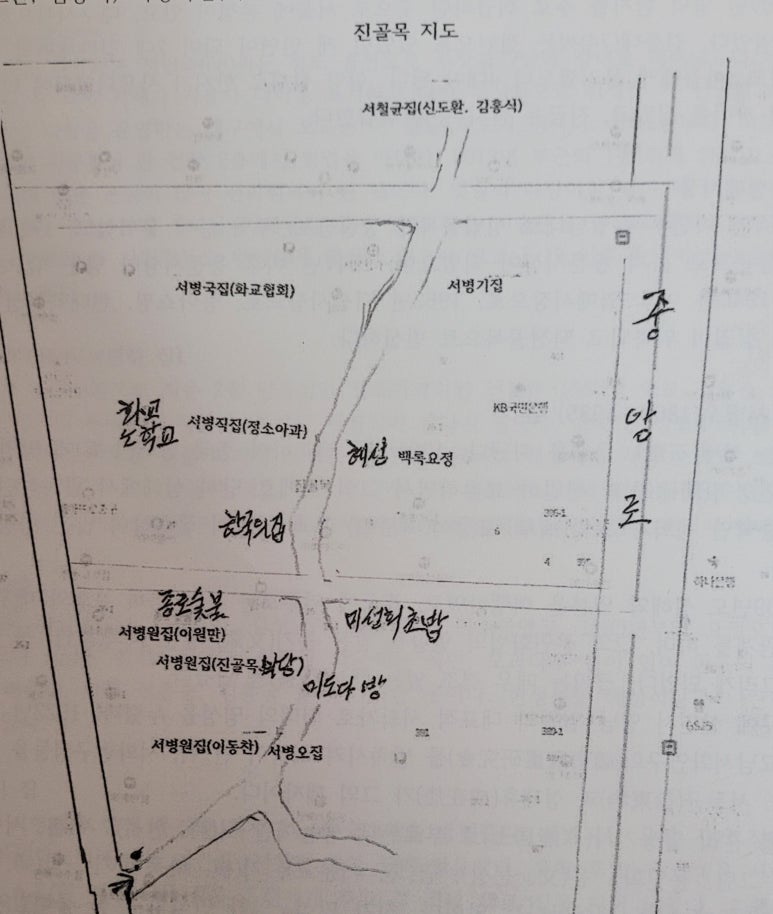 진골목 지도
서철균집(신도환, 김홍식)
서병국집(화교협회)
서병기집
중앙로
KB국민은행
화교
소학교
서병직집(정소아과)
혜성 백록요정
진골목
한국의집
6
4
종로숯불
미성회초밥
서병원집(이원만)
서병원집(진골목식당)
미도다방
서병원집(이동찬)
서병오집
GS25
종
로